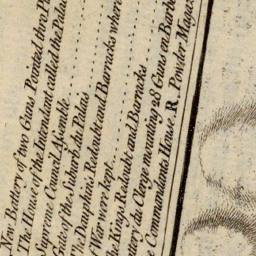 New Battery of two Guns Pointed thro
The House of the Intendant called the Palac
Supreme Council Asemble
Gate of the Suburb du Palais
The Dauphin's Redoubt and Barracks where
of War were kept
the Kings Redoubt and Barracks
du Clerge mounting 28 Guns en Barb
Commandants House R. Powder Magaz